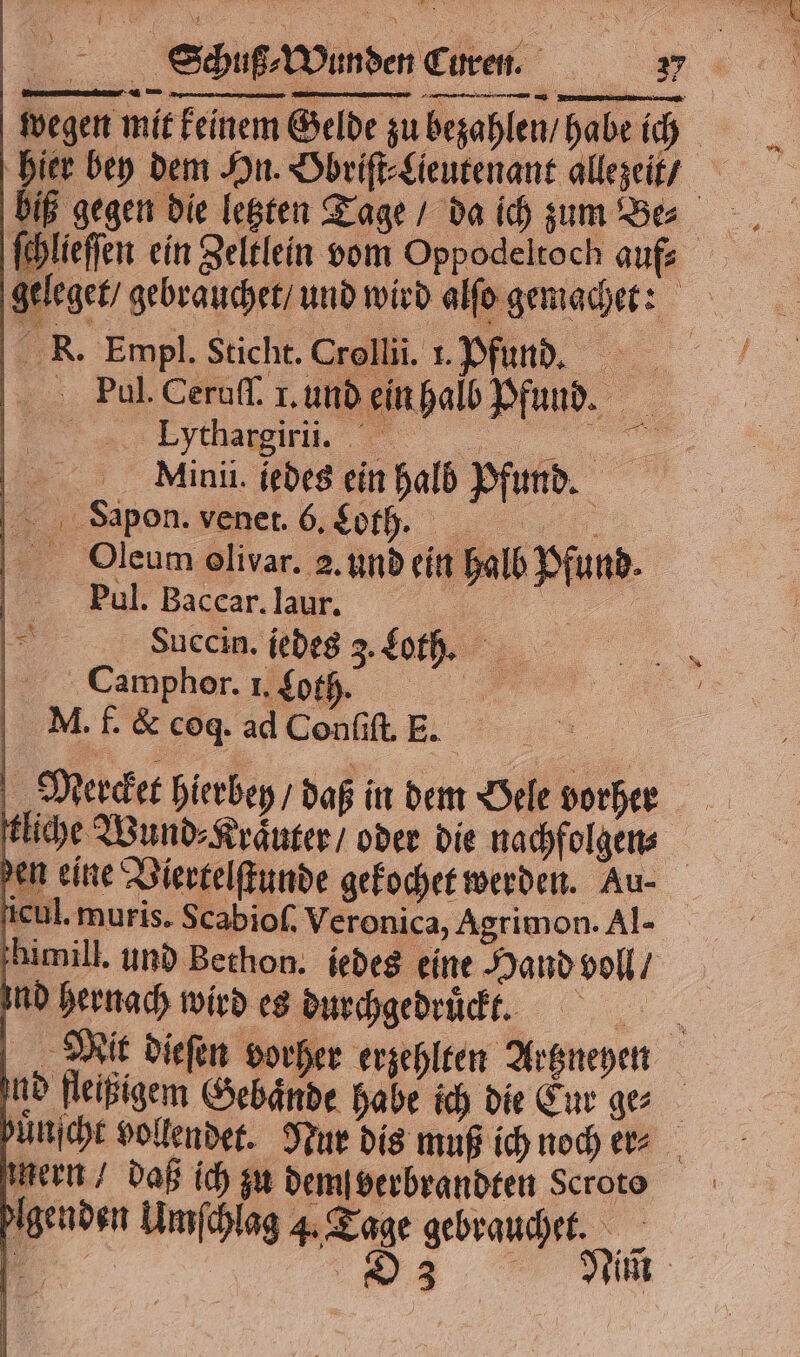 Schuß-Wunden Curen. 37
wegen mit keinem Gelde zu bezahlen/ habe ich
hier bey dem Hn. Obrist-Lieutenant allezeit/
biß gegen die letzten Tage / da ich zum Be-
schliessen ein Zeltlein vom Oppodeltoch auf-
geleget/ gebrauchet/ und wird also gemachet:
R. Empl. Sticht. Crollii. 1. Pfund.
Pul. Ceruss. 1. und ein halb Pfund.
Lythargirii.
Minii. iedes ein halb Pfund.
Sapon. venet. 6. Loth.
Oleum olivar. 2. und ein halb Pfund.
Pul. Baccar. laur.
Succin. iedes 3. Loth.
Camphor. 1. Loth.
M. f. & coq. ad Consist. E.
Mercket hierbey / daß in dem Oele vorher
tliche Wund-Kräuter / oder die nachfolgen-
den eine Viertelstunde gekochet werden. Au-
icul. muris. Scabios. Veronica, Agrimon. Al-
himill. und Bethon. iedes eine Hand voll /
und hernach wird es durchgedrückt.
Mit diesen vorher erzehlten Artzneyen
und fleißigem Gebände habe ich die Cur ge-
wünscht vollendet. Nur dis muß ich noch er-
innern / daß ich zu dem verbrandten Scroto
olgenden Umschlag 4. Tage gebrauchet.
D 3 Nim̃